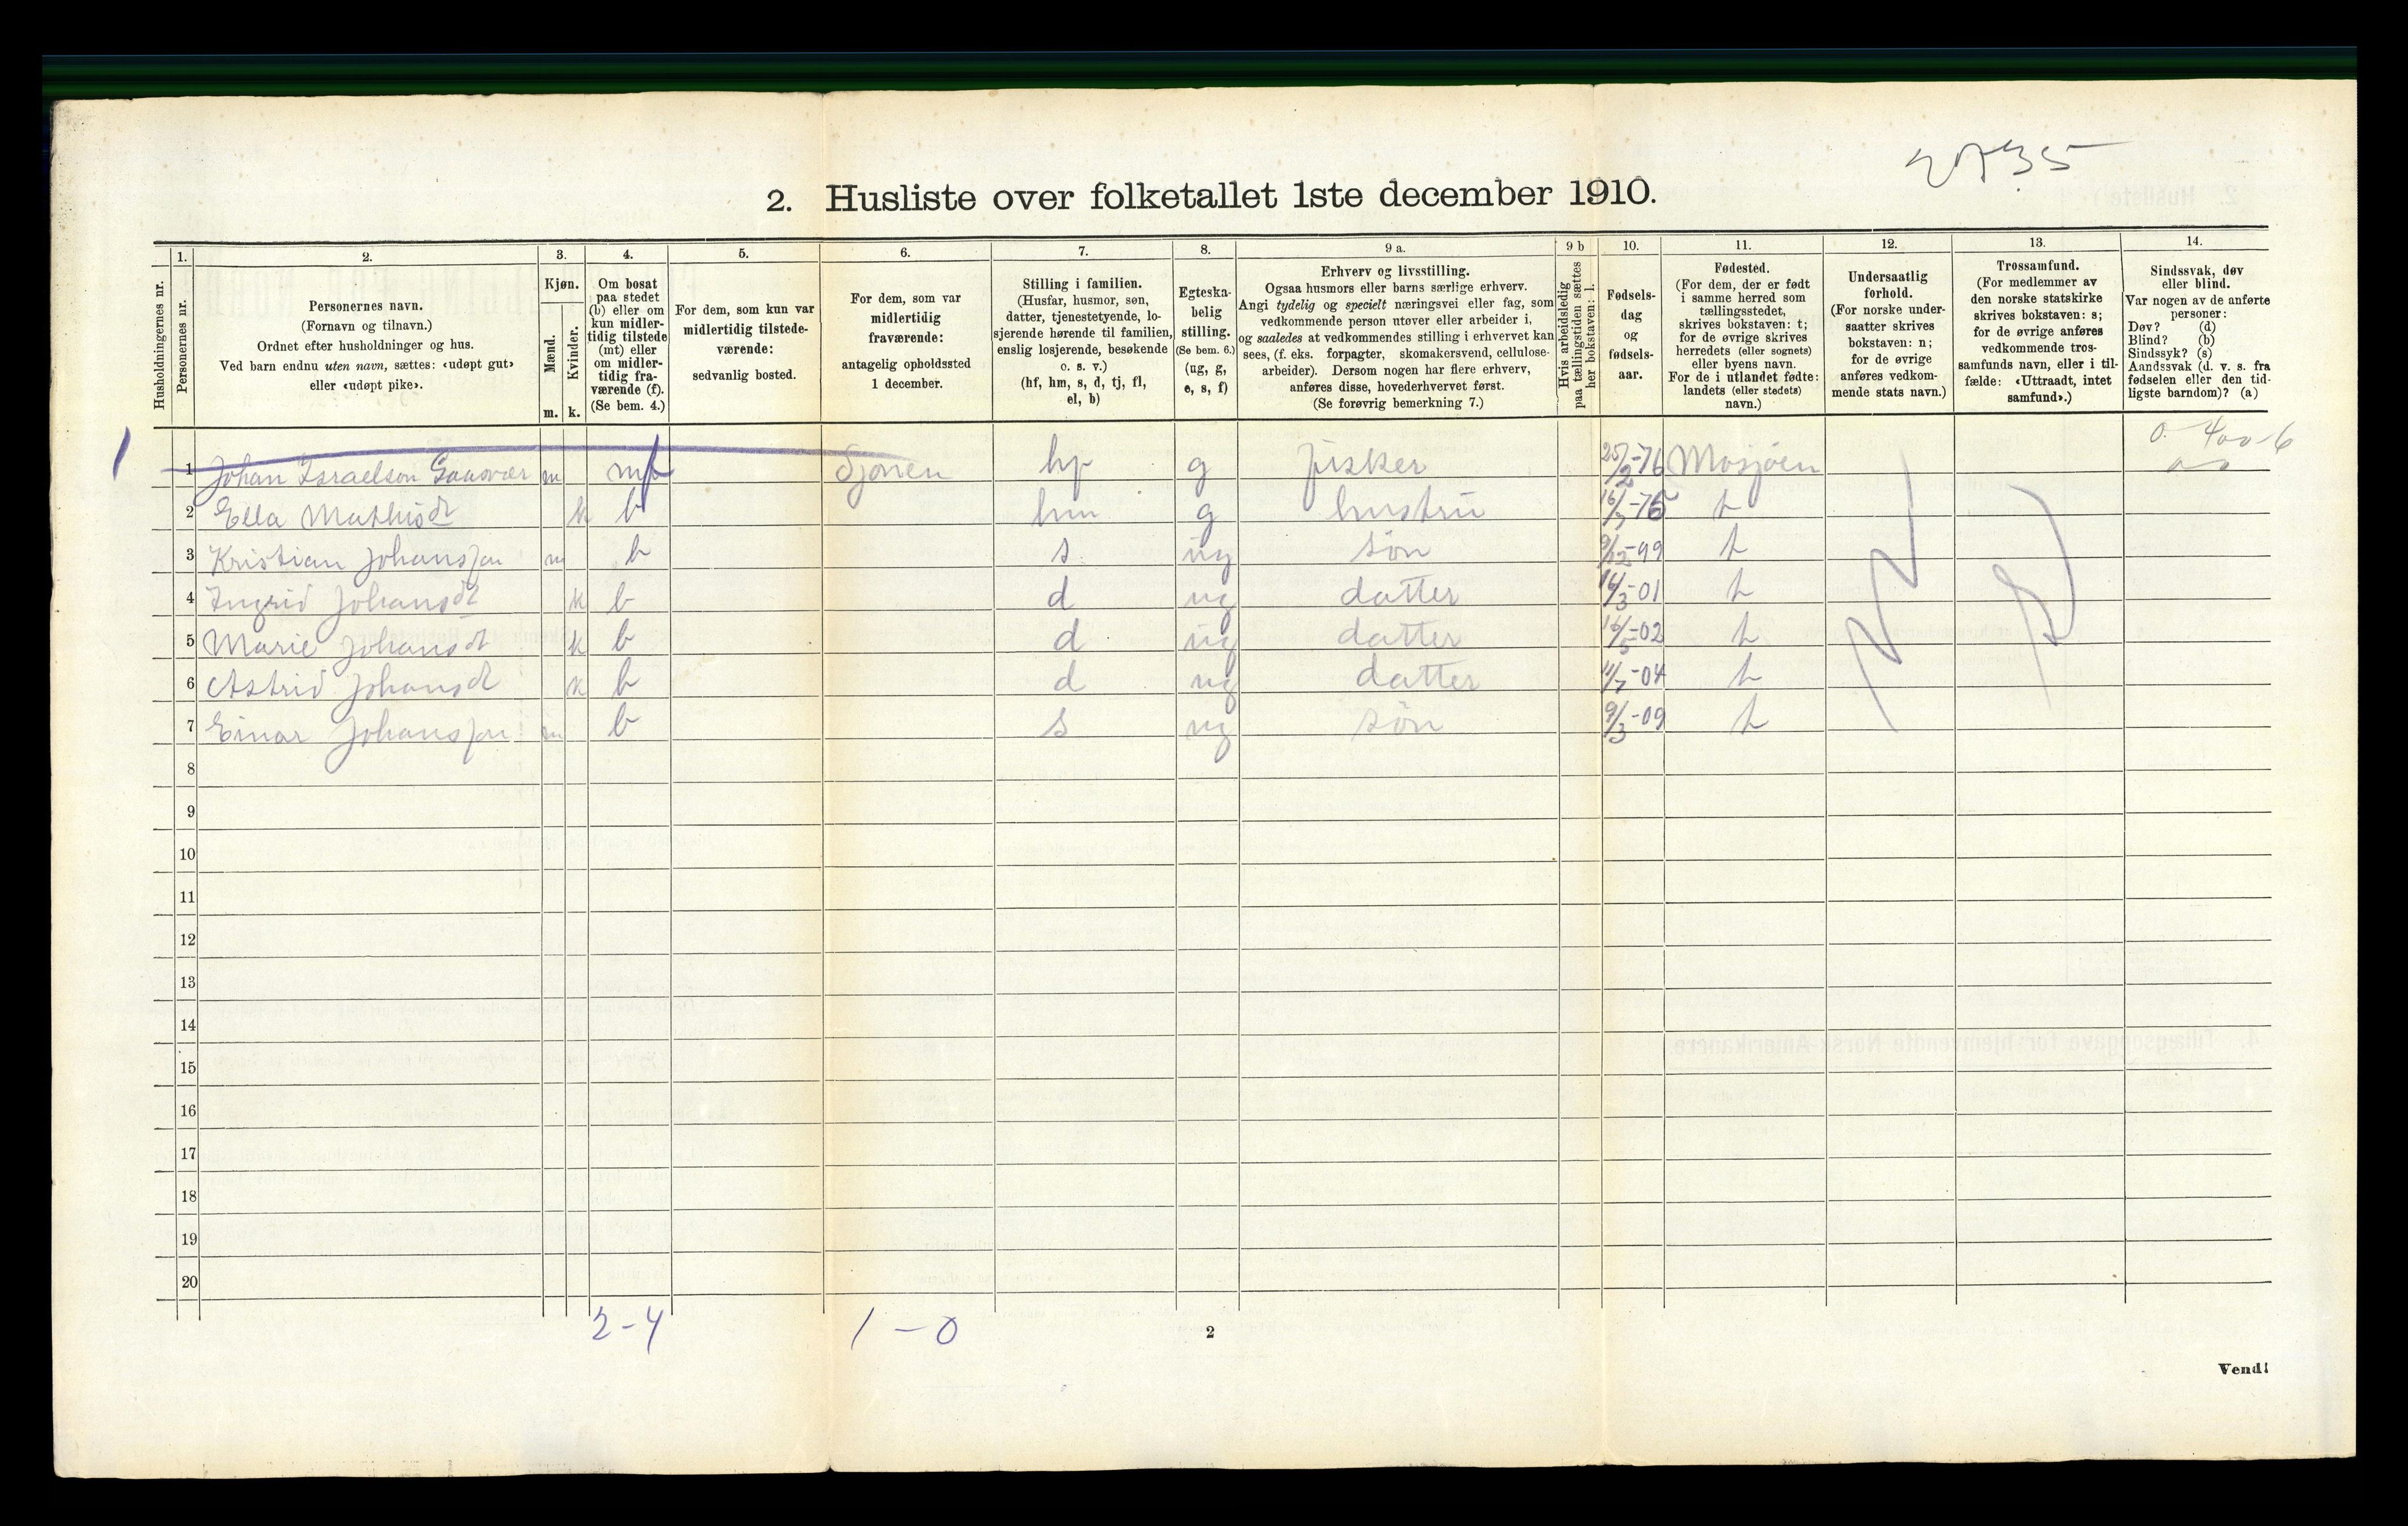 2735
2. Husliste over folketallet 1ste december 1910.
Husholdningernes nr.
1.
Personernes nr.
2.
Personernes navn.
(Fornavn og tilnavn.)
Ordnet efter husholdninger og hus.
Ved barn endnu uten navn, sættes: «udøpt gut»
eller «udøpt pike».
3.
Kjøn.
Mænd.
Kvinder.
m. k.
4.
Om bosat
paa stedet
(b) eller om
kun midler-
tidig tilstede
(mt) eller
om midler-
tidig fra-
værende (f).
(Se bem. 4.)
5.
For dem, som kun var
midlertidig tilstede-
værende:
sedvanlig bosted.
6.
For dem, som var
midlertidig
fraværende:
antagelig opholdssted
1 december.
7.
Stilling i familien.
(Husfar, husmor, søn,
datter, tjenestetyende, lo-
sjerende hørende til familien,
enslig losjerende, besøkende
o. s. v.)
(hf, hm, s, d, tj, fl,
el, b)
8.
Egteska-
belig
stilling.
(Se bem. 6.)
(ug, g,
e, s, f)
9 a.
Erhverv og livsstilling.
Ogsaa husmors eller barns særlige erhverv.
Angi tydelig og specielt næringsvei eller fag, som
vedkommende person utøver eller arbeider i,
og saaledes at vedkommendes stilling i erhvervet kan
sees, (f. eks. forpagter, skomakersvend, cellulose-
arbeider). Dersom nogen har flere erhverv,
anføres disse, hovederhvervet først.
(Se forøvrig bemerkning 7.)
9 b
Hvis arbeidsledig
paa tællingstiden sættes
her bokstaven: l.
10.
Fødsels-
dag
og
fødsels-
aar.
11.
Fødested.
(For dem, der er født
i samme herred som
tællingsstedet,
skrives bokstaven: t;
for de øvrige skrives
herredets (eller sognets)
eller byens navn.
For de i utlandet fødte:
landets (eller stedets)
navn.)
12.
Undersaatlig
forhold.
(For norske under-
saatter skrives
bokstaven: n;
for de øvrige
anføres vedkom-
mende stats navn.)
13.
Trossamfund.
(For medlemmer av
den norske statskirke
skrives bokstaven: s;
for de øvrige anføres
vedkommende tros-
samfunds navn, eller i til-
fælde: «Uttraadt, intet
samfund».)
14.
Sindssvak, døv
eller blind.
Var nogen av de anførte
personer:
Døv? (d)
Blind? (b)
Sindssyk? (s)
Aandssvak (d. v. s. fra
fødselen eller den tid-
ligste barndom)? (a)
0. 400-6
1 1 Johan Israelson m Sjonen hf g fisker 25/2-76 Mosjøen
2 Ella Mathisdt k b hm g hustru t
3 Kristian Johanssøn m b s ug søn 9/12-99 t
4 Ingrid Johansdt k b d ug datter 14/3-01 t
5 Marie Johansdt k b d ug datter 16/5-02 t
6 Astrid Johansdt k b d ug datter 11/7-04 t
7 Einar Johanssøn m b s ug søn 9/3-09 t
N
S
8
9
10
11
12
13
14
15
16
17
18
19
20
2-4 1-0
2
Vend!